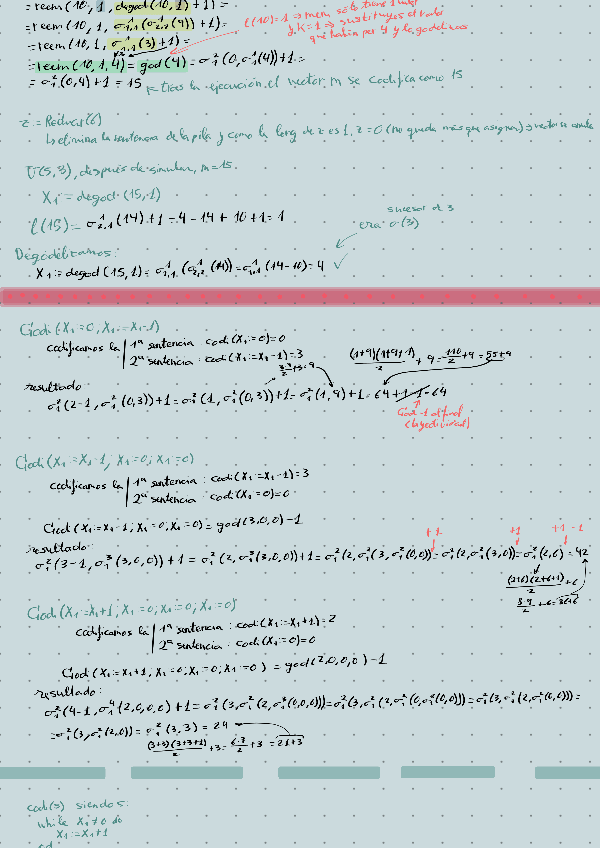 = reem(10, 1, degod(10,1)+1) =
= reem(10, 1, σ¹₁,₁(σ¹₂,₂(9))+1) =
= reem(10, 1, σ¹₁,₁(3)+1) =
= reem(10,1,4) = god(4) = σ²₁(0, σ¹₁(4))+1 =
= σ²₁(0,4)+1 = 15 tras la ejecución, el vector m se codifica como 15
ℓ(10)=1 → mem solo tiene 1
y K=1 → sustituyes el
que había por 4 y lo godelizas
z := Reducir(6)
↳ elimina la sentencia de la pila y como la long de z es 1, z=0 (no queda más que asignar) →
U(5,3), después de simular, m=15.
X₁ := degod(15,1)
ℓ(15) = σ¹₂,₁(14)+1 = 4-14+10+1 = 1
sucesor de 3
era σ(3)
Degodelizamos:
X₁ := degod(15,1) = σ¹₂,₁(σ¹₂,₂(14)) = σ¹₁,₁(14-10) = 4 ✓
God(X₁:=0, X₁:=X₁-1)
codificamos la | 1ª sentencia cod(X₁:=0)=0
2ª sentencia : cod(X₁:=X₁-1)=3
(1+9)(1+9+1)/2 + 9 = 110/2 + 9 = 55+9
3·4/2 +3=9
resultado
σ²₁(2-1, σ²₁(0,3))+1 = σ²₁(1, σ²₁(0,3))+1 = σ²₁(1,9)+1 = 64+1-1 = 64
God-1 al final
(biyectividad)
God(X₁:=X₁-1; X₁:=0; X₁:=0)
codificamos la | 1ª sentencia : cod(X₁:=X₁-1)=3
2ª sentencia cod(X₁:=0)=0
God(X₁:=X₁-1; X₁:=0; X₁:=0) = god(3,0,0)-1
resultado
+1 +1 +1 -1
σ²₁(3-1, σ³₁(3,0,0))+1 = σ²₁(2, σ³₁(3,0,0))+1 = σ²₁(2, σ²₁(3, σ²₁(0,0))) = σ²₁(2, σ²₁(3,0)) = σ²₁(2,6) = 42
(2+6)(2+6+1)/2 + 6
8·9/2 + 6 = 36+6
God(X₁:=X₁+1; X₁:=0; X₁:=0; X₁:=0)
codificamos la | 1ª sentencia : cod(X₁:=X₁+1)=2
2ª sentencia : cod(X₁:=0)=0
God(X₁:=X₁+1; X₁:=0; X₁:=0; X₁:=0) = god(2,0,0,0)-1
resultado:
σ²₁(4-1, σ⁴₁(2,0,0,0))+1 = σ²₁(3, σ²₁(2, σ³₁(0,0,0))) = σ²₁(3, σ²₁(2, σ²₁(0, σ²₁(0,0)))) = σ²₁(3, σ²₁(2, σ²₁(0,0))) =
= σ²₁(3, σ²₁(2,0)) = σ²₁(3,3) = 24
(3+3)(3+3+1)/2 + 3 = 6·7/2 + 3 = 21+3
cod(s) siendo s:
while X₁≠0 do
X₁:=X₁+1
od